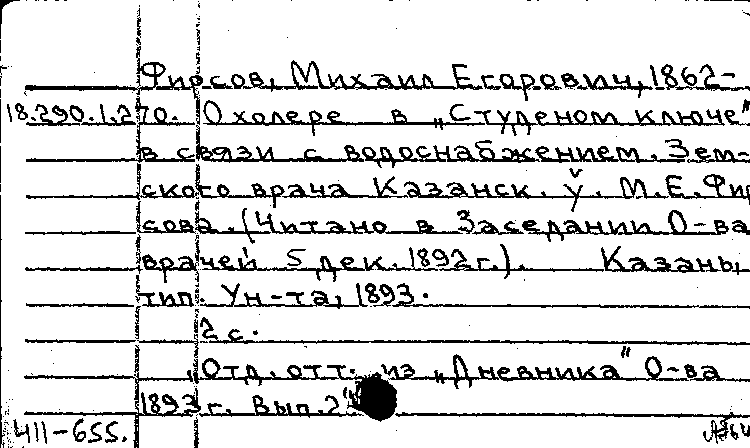 Фирсов, Михаил Егорович, 1862-
18.290.1.270. О холере в „Студеном ключе"
в связи с водоснабжением. Зем-
ского врача Казанск. у. М.Е. Фир
сова. (Читано в Заседании О-ва
врачей 5 дек. 1892г.). Казань,
тип. Ун-та, 1893.
2 с.
„Отд. отт. из „Дневника" О-ва
1893 г. Вып. 2"
411-655.